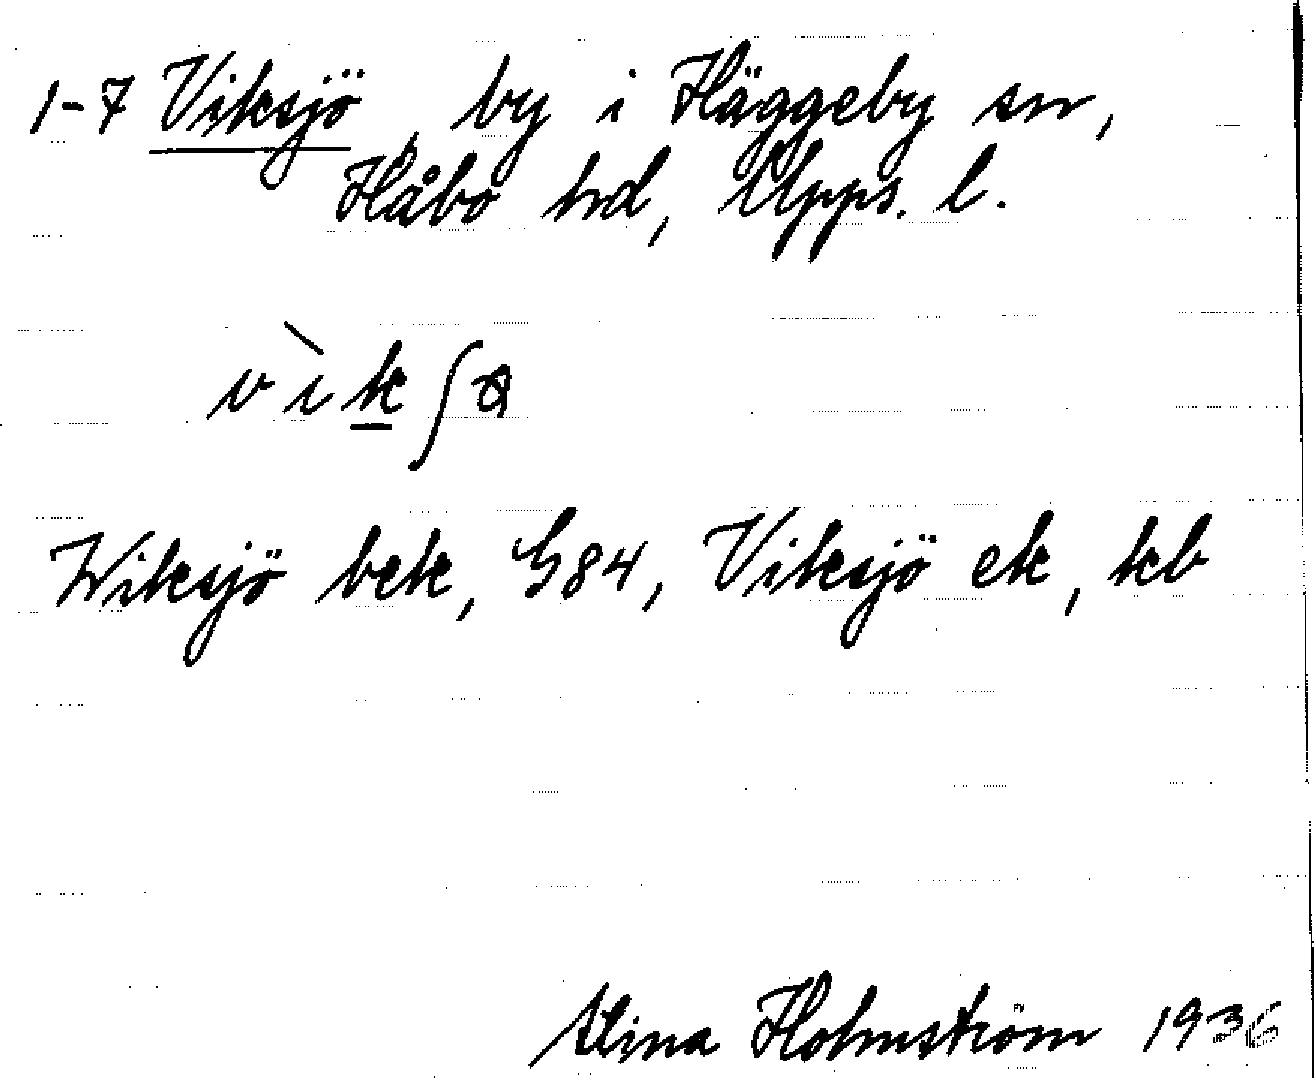 1-7 Viksjö, by i Häggeby sn,
Håbo hd, Upps. l.
Wiksjö bek, G84, Viksjö ek, kb
Holmström 1936